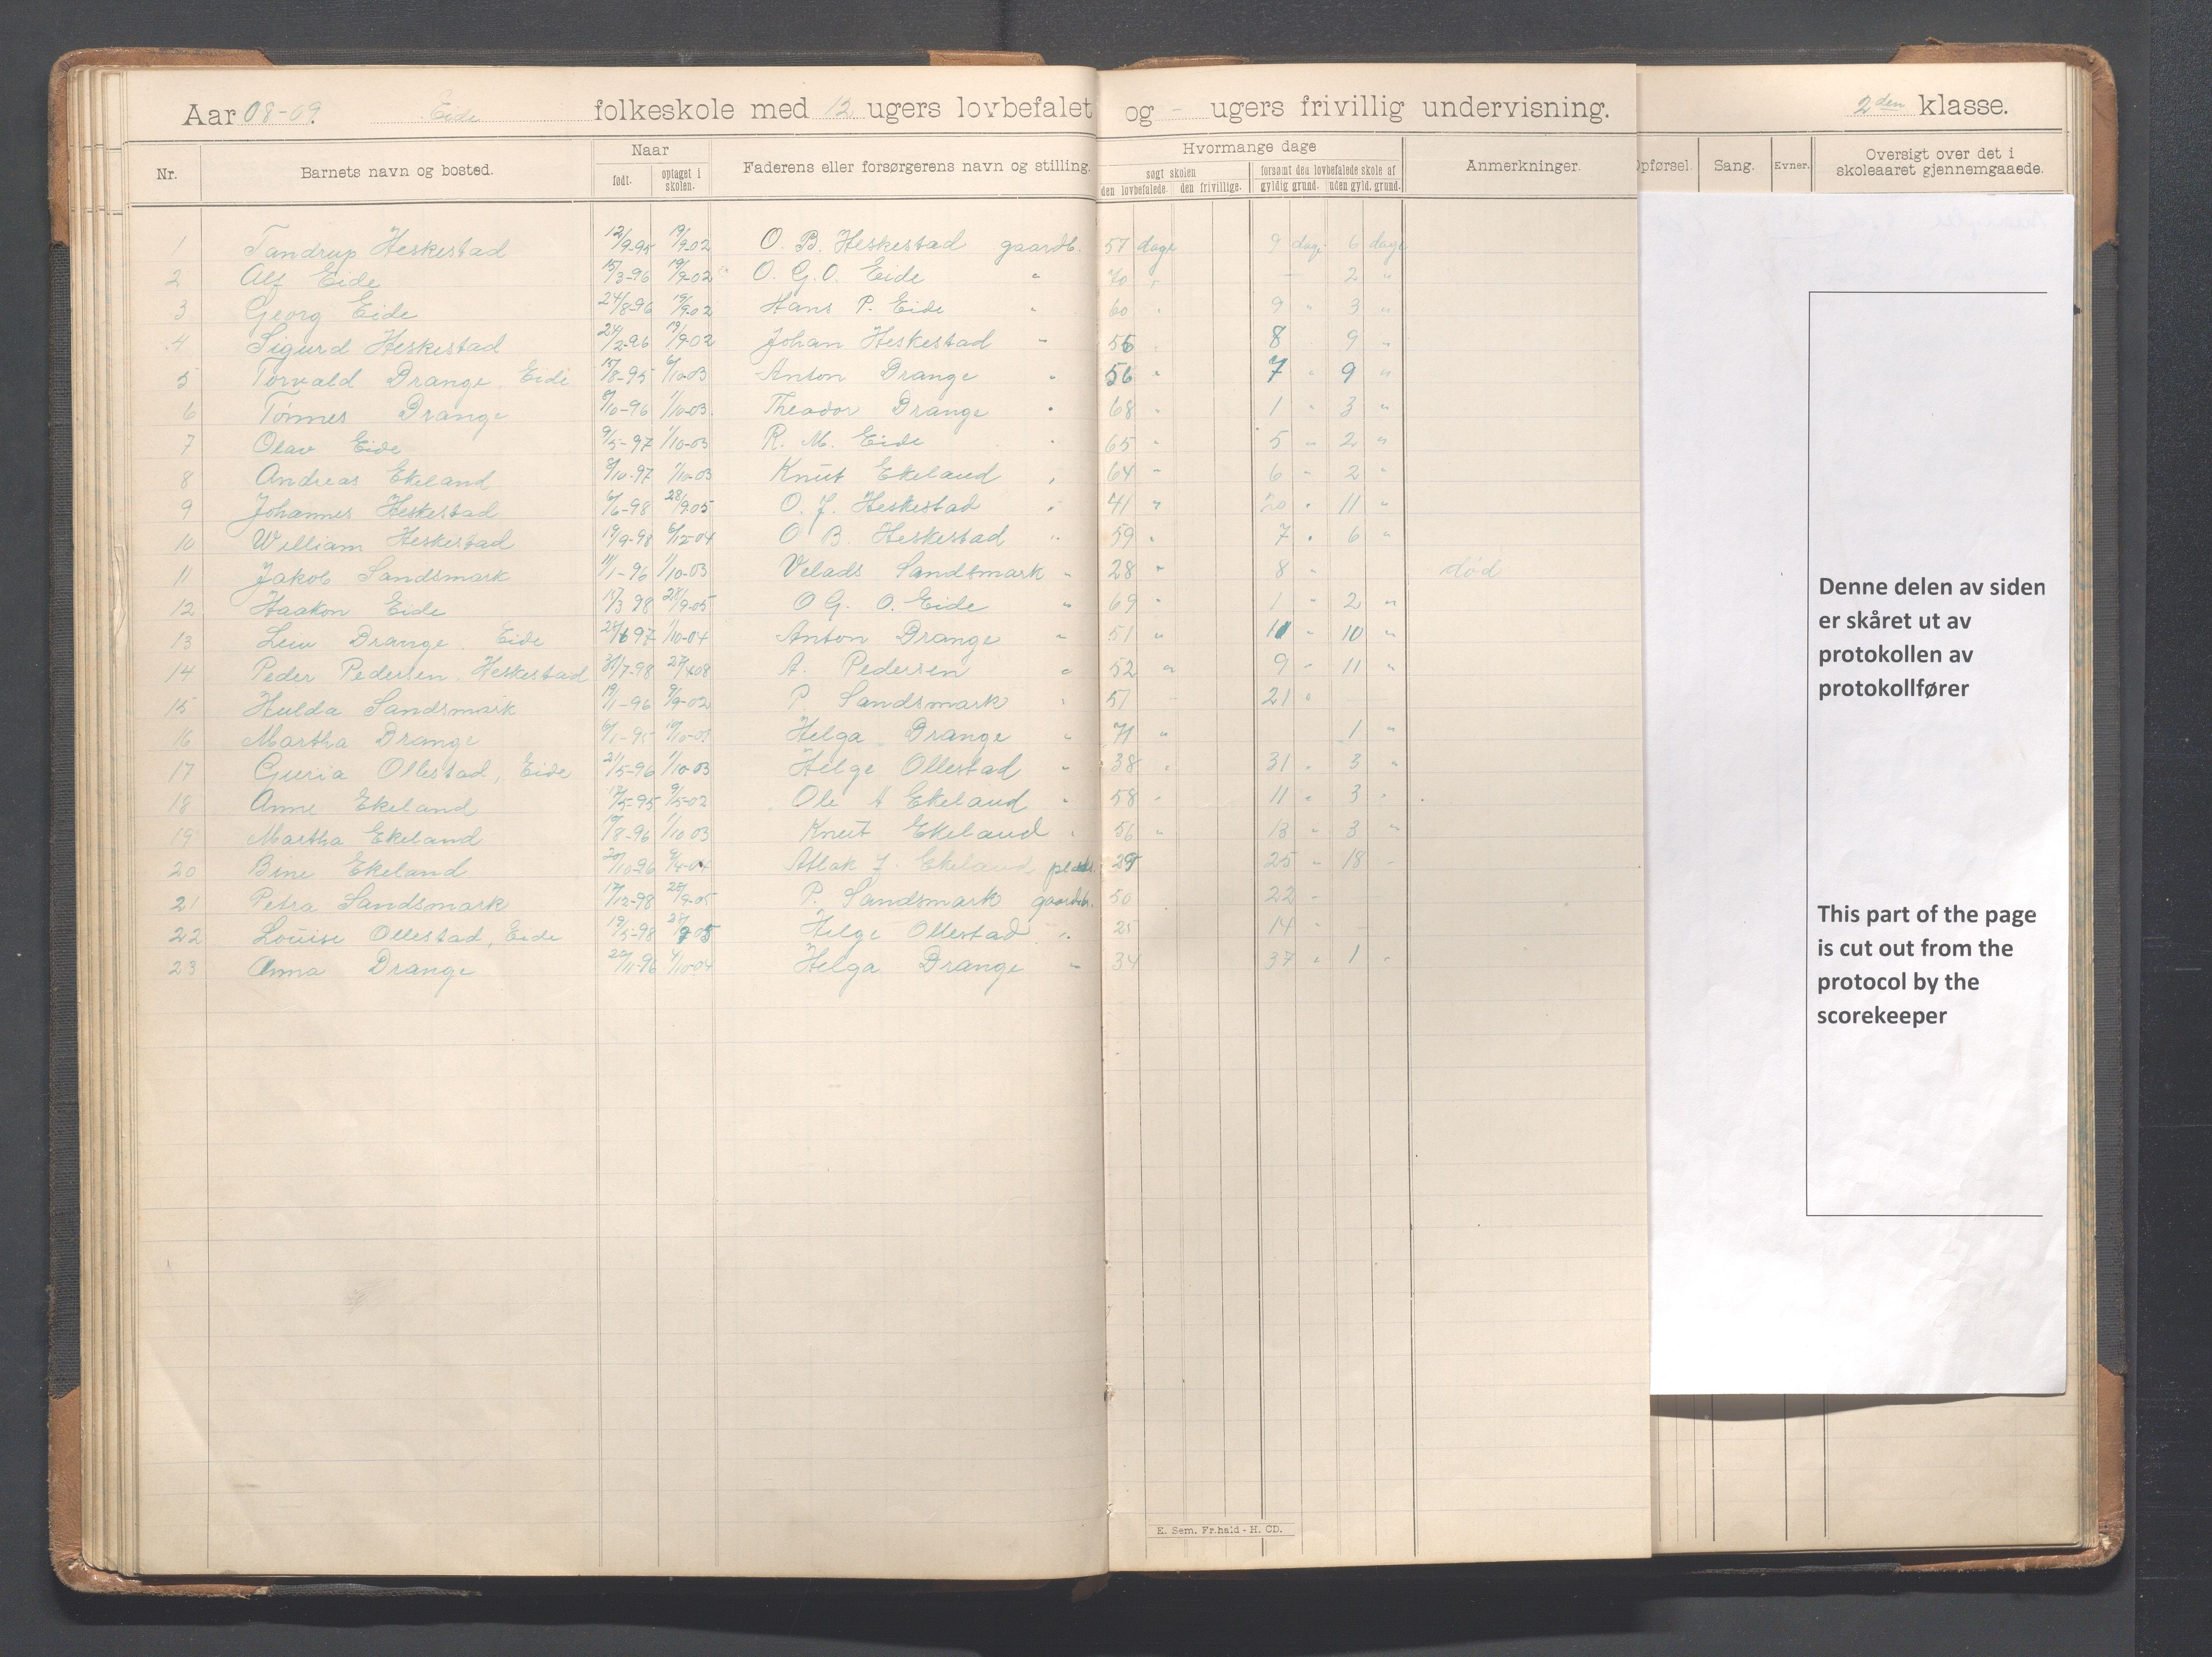 Aar 08-09. Eide folkeskole med 12 ugers lovbefalet og - ugers frivillig undervisning. 2den klasse.
Nr. Barnets navn og bosted. Naar født. optaget i skolen. Faderens eller forsørgerens navn og stilling. Hvormange dage søgt skolen den lovbefalede. den frivillige. forsømt den lovbefalede skole af gyldig grund. uden gyld. grund. Anmerkninger. Opførsel. Sang. Evner. Oversigt over det i skoleaaret gjennemgaaede.
1 Tandrup Heskestad 12/9-95 19/9-02 O. B. Heskestad gaardb. 57 dage 9 dage 6 dage
2 Alf Eide 15/3-96 19/9-02 O. G. O. Eide " 70 " - 2 "
3 Georg Eide 24/8-96 19/9-02 Hans P. Eide " 60 " 9 " 3 "
4 Sigurd Heskestad 24/2-96 19/9-02 Johan Heskestad " 56 " 8 9 "
5 Torvald Drange, Eide 15/8-95 6/10-03 Anton Drange " 56 " 7 " 9 "
6 Tønnes Drange 8/10-96 1/10-03. Theodor Drange " 68 " 1 " 3 "
7 Olav Eide 9/5-97 1/10-03 R. M. Eide " 65 " 5 " 2 "
8 Andreas Ekeland 8/10-97 1/10-03 Knut Ekeland " 64 " 6 " 2 "
9 Johannes Heskestad 6/6-98 28/9-05 O. J. Heskestad " 41 " 20 " 11 "
10 William Heskestad 19/9-98 6/12-04 O B. Heskestad " 59 " 7 " 6 "
11 Jakob Sandsmark 11/1-96 1/10-03 Velads Sandsmark " 28 " 8 " død
12 Haakon Eide 15/3 98 28/9-05 O G. O. Eide " 69 " 1 " 2 "
13 Leiv Drange. Eide 28/6 97 1/10-04 Anton Drange " 51 " 11 " 10 "
14 Peder Pedersen, Heskestad 31/7-98 27/4 08 A. Pedersen " 52 " 9 " 11 "
15 Hulda Sandsmark 19/1-96 9/9-02 P. Sandsmark " 51 21 "
16 Martha Drange 6/1-95 Helga Drange " 71 " 1 "
17 Guria Ollestad, Eide 21/5-96 1/10-03 Helge Ollestad " 38 " 31 " 3 "
18 Anne Ekeland 17/5-95 9/5-02 Ole A Ekeland " 58 " 11 " 3 "
19 Martha Ekeland 19/8-96 1/10 03 Knut Ekeland " 56 " 13 " 3 "
20 Bine Ekeland 20/10-96 9/4-04 Atlak J. Ekeland 29 25 " 18 "
21 Petra Sandsmark 17/12-98 28/9-05 P. Sandsmark gaardbr. 50 22 "
22 Louise Ollestad, Eide 19/5-98 28/9 05 Helge Ollestad " 25 14 "
23 Anna Drange 20/11-96 4/10-04 Helga Drange " 34 37 " 1 "
Denne delen av siden
er skåret ut av
protokollen av
protokollfører
This part of the page
is cut out from the
protocol by the
scorekeeper
E. Sem. Fr.hald - H. CD.